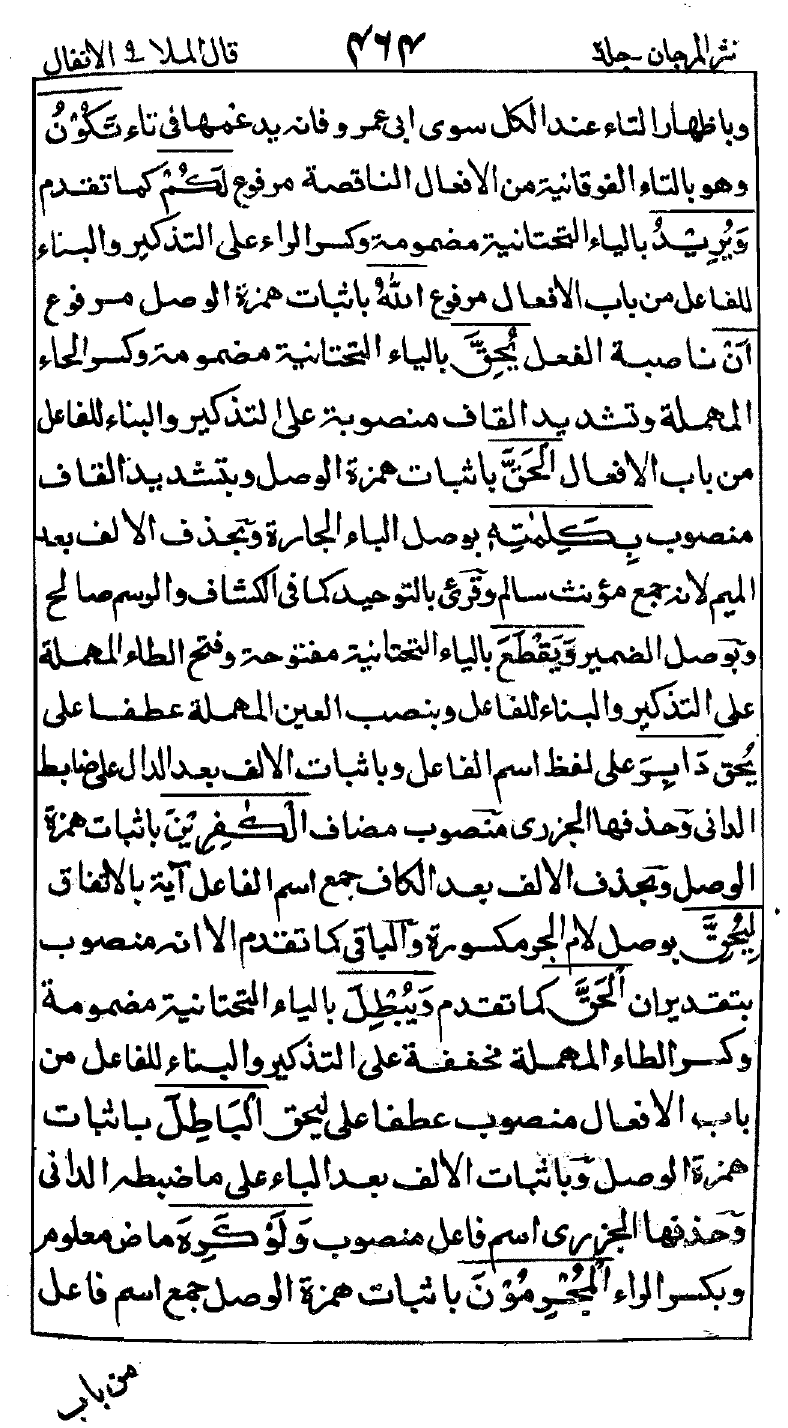 نثر المرجان جلد٢ ٤٦٤ قال الملا ٩ الانفال
وباظهار التاء عند الكل سوى ابى عمرو فانه يدغمها فى تاء تَكُوْنُ
وهو بالتاء الفوقانية من الافعال الناقصة مرفوع لَكُمْ كما تقدم
وَيُرِيْدُ بالياء التحتانية مضمومة وكسر الراء على التذكير والبناء
للفاعل من باب الافعال مرفوع اللهُ باثبات همزة الوصل مرفوع
اَنْ ناصبة الفعل يُّحِقَّ بالياء التحتانية مضمومة وكسر الحاء
المهملة وتشديد القاف منصوبة على التذكير والبناء للفاعل
من باب الافعال الْحَقَّ باثبات همزة الوصل وبتشديد القاف
منصوب بِكَلِمٰتِهٖ بوصل الباء الجارة وبحذف الالف بعد
الميم لانه جمع مؤنث سالم وقرئ بالتوحيد كما فى الكشاف والرسم صالح
وبوصل الضمير وَيَقْطَعَ بالياء التحتانية مفتوحة وفتح الطاء المهملة
على التذكير والبناء للفاعل وبنصب العين المهملة عطفا على
يُحق دَابِرَ على لفظ اسم الفاعل وباثبات الالف بعد الدال على ضابط
الدانى وحذفها الجزرى منصوب مضاف الْكٰفِرِيْنَ باثبات همزة
الوصل وبحذف الالف بعد الكاف جمع اسم الفاعل آية بالاتفاق
لِيُحِقَّ بوصل لام الجر مكسورة والباقى كما تقدم الا انه منصوب
بتقدير ان الْحَقَّ كما تقدم وَيُبْطِلَ بالياء التحتانية مضمومة
وكسر الطاء المهملة مخففة على التذكير والبناء للفاعل من
باب الافعال منصوب عطفا على ليحق الْبَاطِلَ باثبات
همزة الوصل وباثبات الالف بعد الباء على ما ضبطه الدانى
وحذفها الجزرى اسم فاعل منصوب وَلَوْ كَرِهَ ماض معلوم
وبكسر الراء الْمُجْرِمُوْنَ باثبات همزة الوصل جمع اسم فاعل
من باب